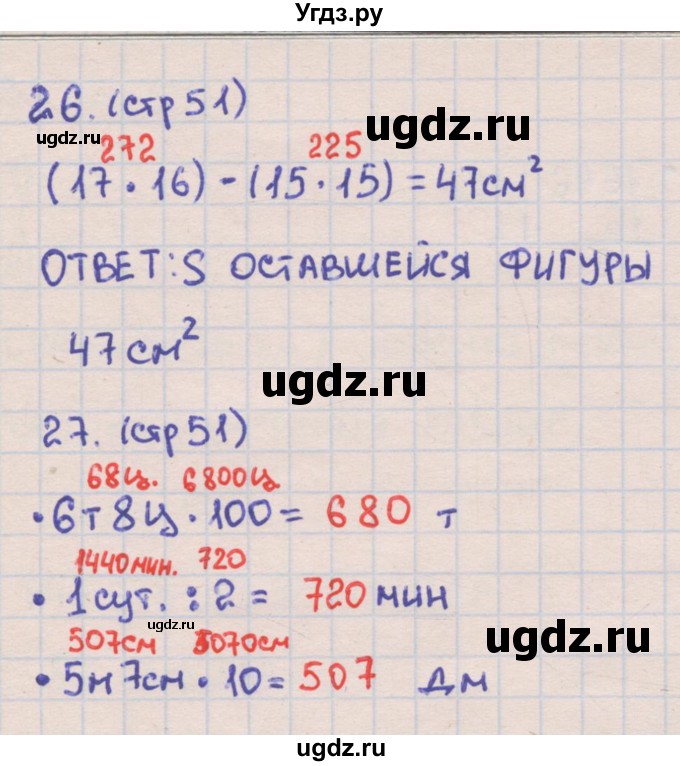 Угдз.ру
26. (стр 51)
ugdz.ru
ugdz.ru
272 225
(17 · 16) - (15 · 15) = 47 см²
ОТВЕТ: S ОСТАВШЕЙСЯ ФИГУРЫ
47 см²
ugdz.ru
27. (стр 51)
68 ц. 6800 ц.
· 6 т 8 ц · 100 = 680 т
1440 мин. 720
· 1 сут. : 2 = 720 мин
ugdz.ru
507 см 5070 см
ugdz.ru
· 5 м 7 см · 10 = 507 дм
ugdz.ru